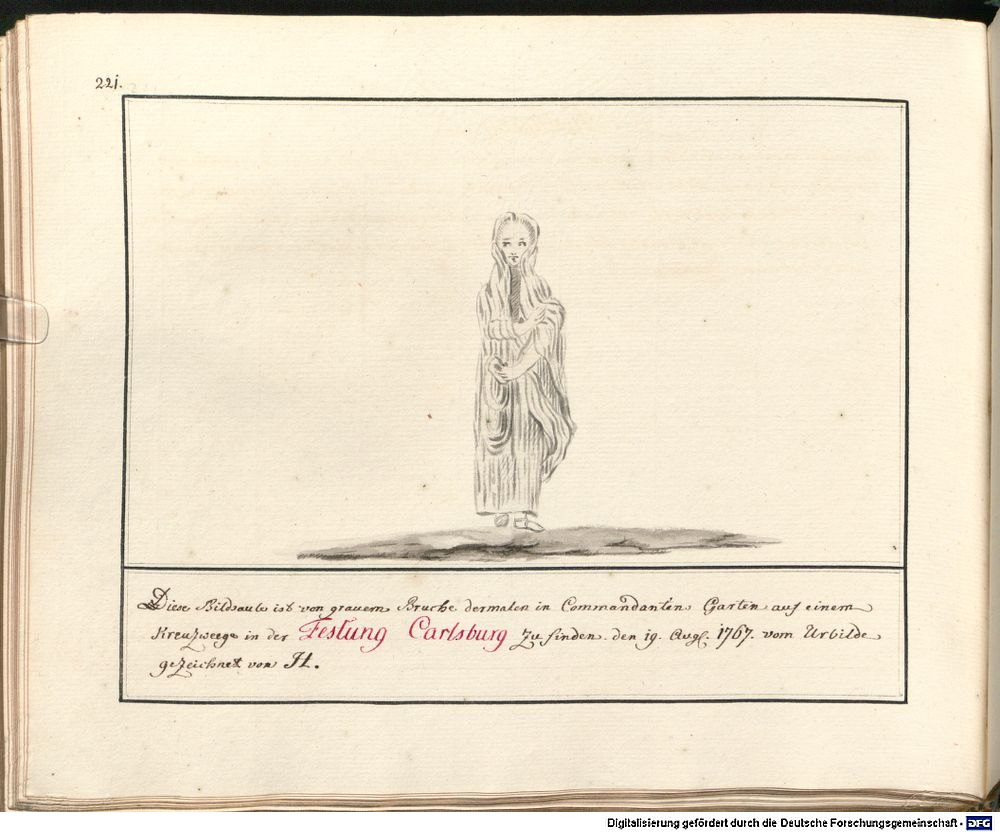 221.
Diese Bildsaule ist von grauem Bruche dermalen in Commandanten Garten auf einem
Kreuzweege in der Festung Carlsburg zu finden. den 19. Augl. 1767. vom Urbilde
gezeichnet von H.
Digitalisierung gefördert durch die Deutsche Forschungsgemeinschaft - DFG